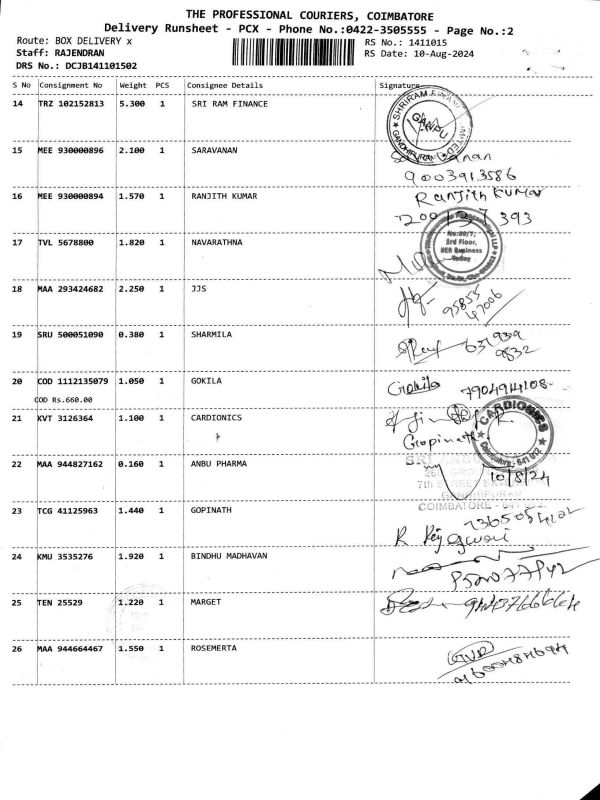 THE PROFESSIONAL COURIERS, COIMBATORE
Delivery Runsheet - PCX - Phone No.:0422-3505555 - Page No.:2
Route: BOX DELIVERY x
RS No.: 1411015
Staff: RAJENDRAN
RS Date: 10-Aug-2024
DRS No.: DCJB141101502
S No Consignment No Weight PCS Consignee Details Signature
14 TRZ 102152813 5.300 1 SRI RAM FINANCE
15 MEE 930000896 2.100 1 SARAVANAN
9003913586
16 MEE 930000894 1.570 1 RANJITH KUMAR Ranjith Kumar
17 TVL 5678800 1.820 1 NAVARATHNA
3rd Floor,
18 MAA 293424682 2.250 1 JJS
95855
47006
19 SRU 500051090 0.380 1 SHARMILA
9832
20 COD 1112135079 1.050 1 GOKILA Gokila 7904914108
COD Rs.660.00
21 KVT 3126364 1.100 1 CARDIONICS CARDIONICS
Gopinath
22 MAA 944827162 0.160 1 ANBU PHARMA 10/8/24
GANDHIPURAM
COIMBATORE
23 TCG 41125963 1.440 1 GOPINATH
24 KMU 3535276 1.920 1 BINDHU MADHAVAN
25 TEN 25529 1.220 1 MARGET
26 MAA 944664467 1.550 1 ROSEMERTA